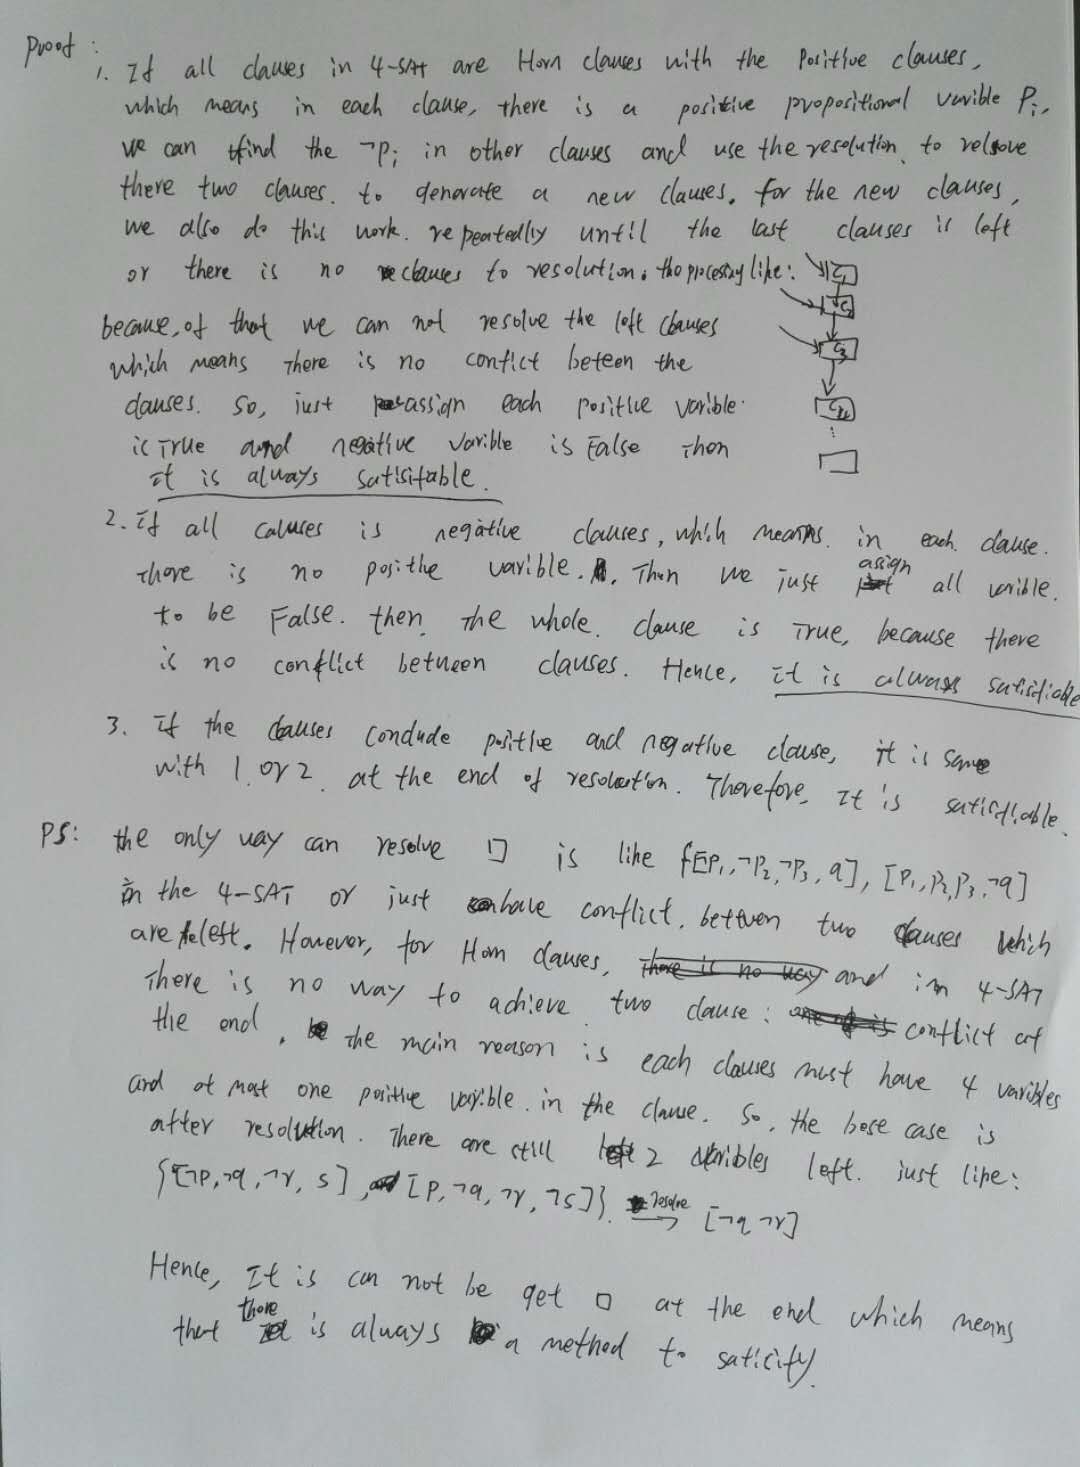 Proof:
1. If all clauses in 4-SAT are Horn clauses with the Positive clauses,
which means in each clause, there is a positive propositional varible Pi,
we can find the ¬Pi in other clauses and use the resolution to relsove
there two clauses. to denarate a new clauses. for the new clauses,
we also do this work. repeatedly until the last clauses is left
or there is no clauses to resolution. the procesing like: C1
C2
because, of that we can not resolve the left clauses
C3
which means there is no confict beteen the
clauses. So, just assign each positive varible
C4
is True and negative varible is False Then
It is always satisifable.
2. If all caluses is negative clauses, which means. in each clause.
There is no positive varible. Then we just assign all varible.
to be False. then, the whole. clause is True, because there
is no conflict between clauses. Hence, it is always satisifiable
3. If the clauses conclude positive and negative clause, it is same
with 1. or 2. at the end of resolution. Therefore, It is satisifiable.
PS: the only way can resolve □ is like {[P1,¬P2,¬P3,q], [P1,P2,P3,¬q]
in the 4-SAT or just have conflict. between two clauses which
are left. However, for Horn clauses, There is no way and in 4-SAT
There is no way to achieve two clause: conflict at
the end, the main reason is each clauses must have 4 varibles
and at most one positive varible. in the clause. So, the base case is
after resolution. There are still 2 varibles left. just like:
{[¬P,¬q,¬r,s], [P,¬q,¬r,¬s]}. resolve → [¬q ¬r]
Hence, It is can not be get □ at the end which means
that there is always a method to saticify.